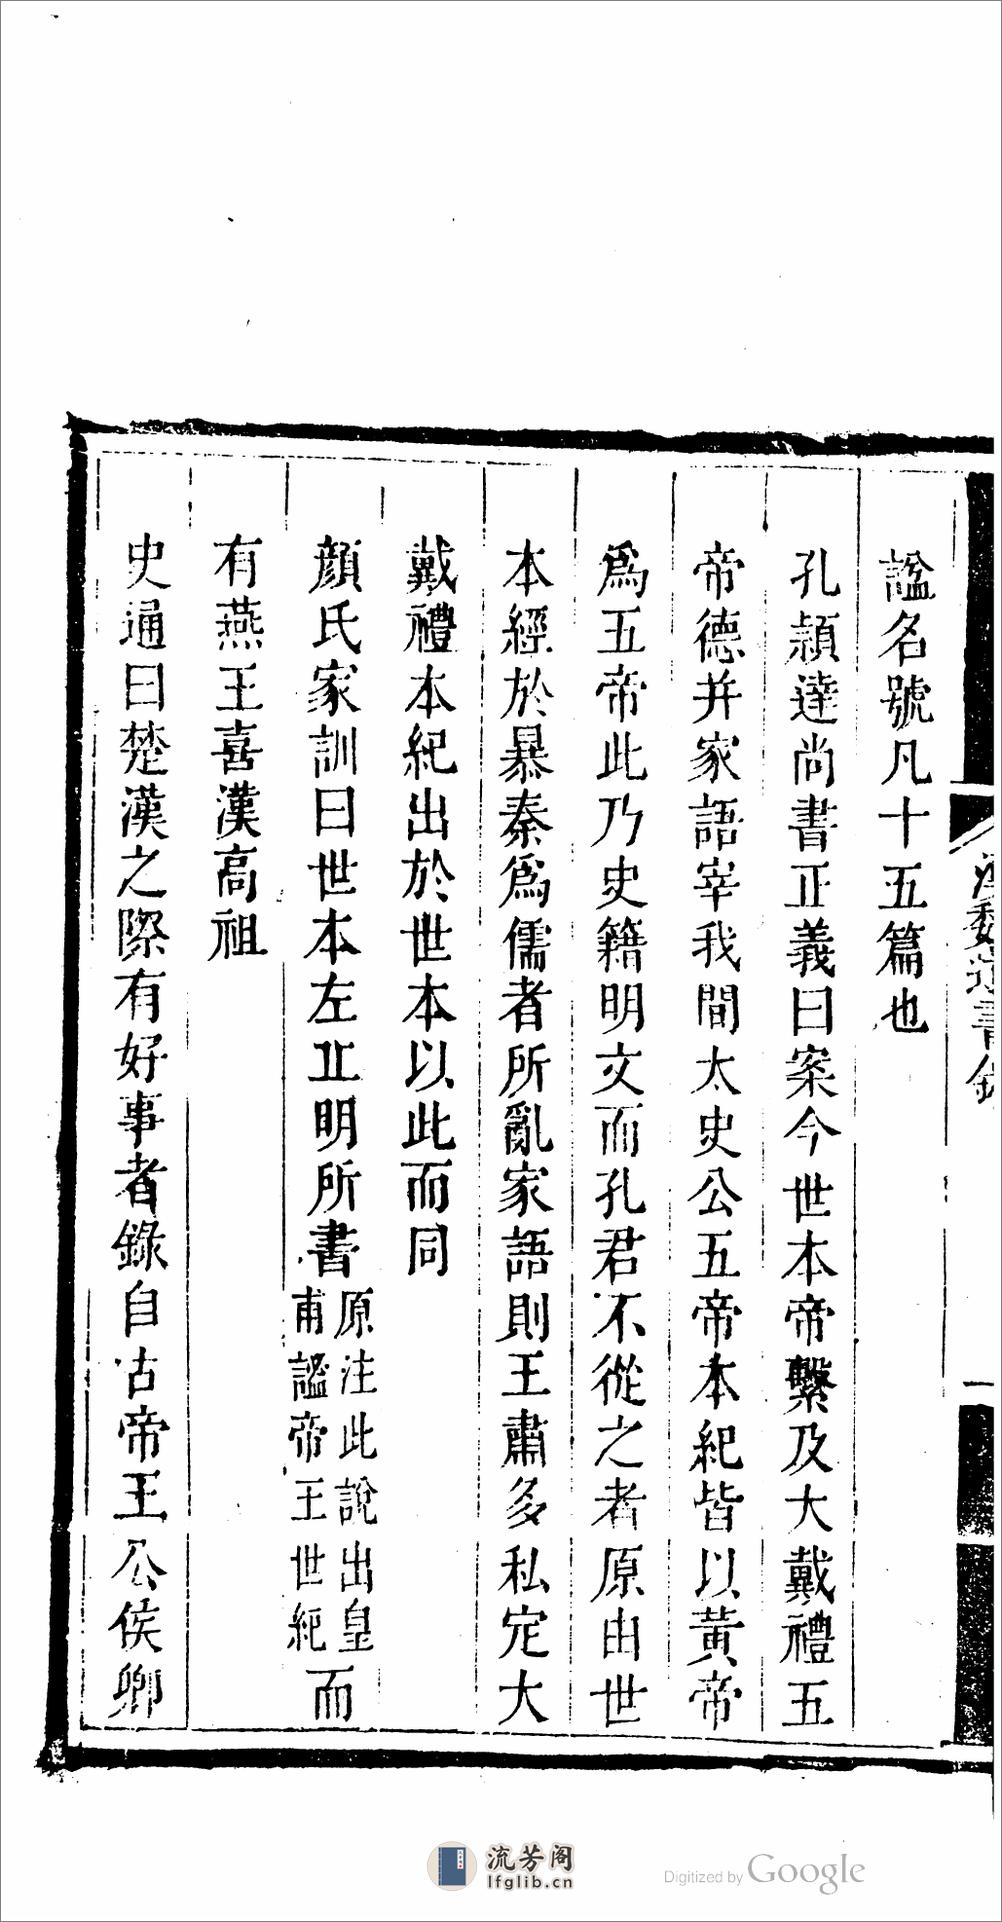 諡名號凡十五篇也
孔頴達尚書正義曰案今世本帝繫及大戴禮五
帝德并家語宰我問太史公五帝本紀皆以黃帝
爲五帝此乃史籍明文而孔君不從之者原由世
本經於暴秦爲儒者所亂家語則王肅多私定大
戴禮本紀出於世本以此而同
顔氏家訓曰世本左丘明所書原注此說出皇甫謐帝王世紀而
有燕王喜漢高祖
史通曰楚漢之際有好事者錄自古帝王公侯卿
漢魏遺書鈔
一
流芳阁
lfglib.cn
Digitized by Google